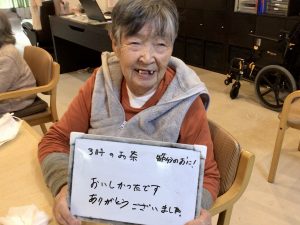 3時のお茶 節分のおに!
おいしかったです
ありがとうございました。